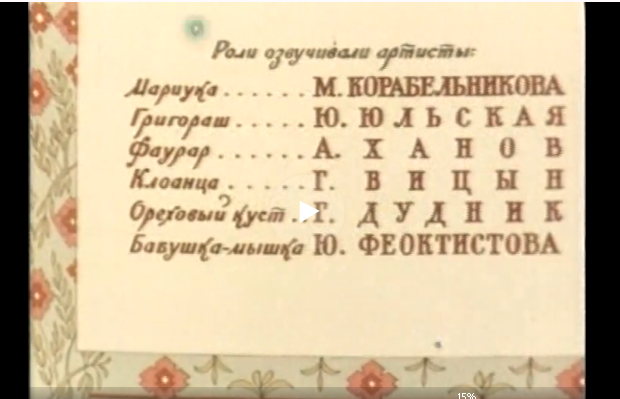 Роли озвучивали артисты:
Мариука . . . . . . М. КОРАБЕЛЬНИКОВА
Григораш . . . . . Ю. ЮЛЬСКАЯ
Фаурар . . . . . . А. ХАНОВ
Клоанца . . . . . Г. ВИЦЫН
Ореховый куст . . Г. ДУДНИК
Бабушка-мышка Ю. ФЕОКТИСТОВА
15%